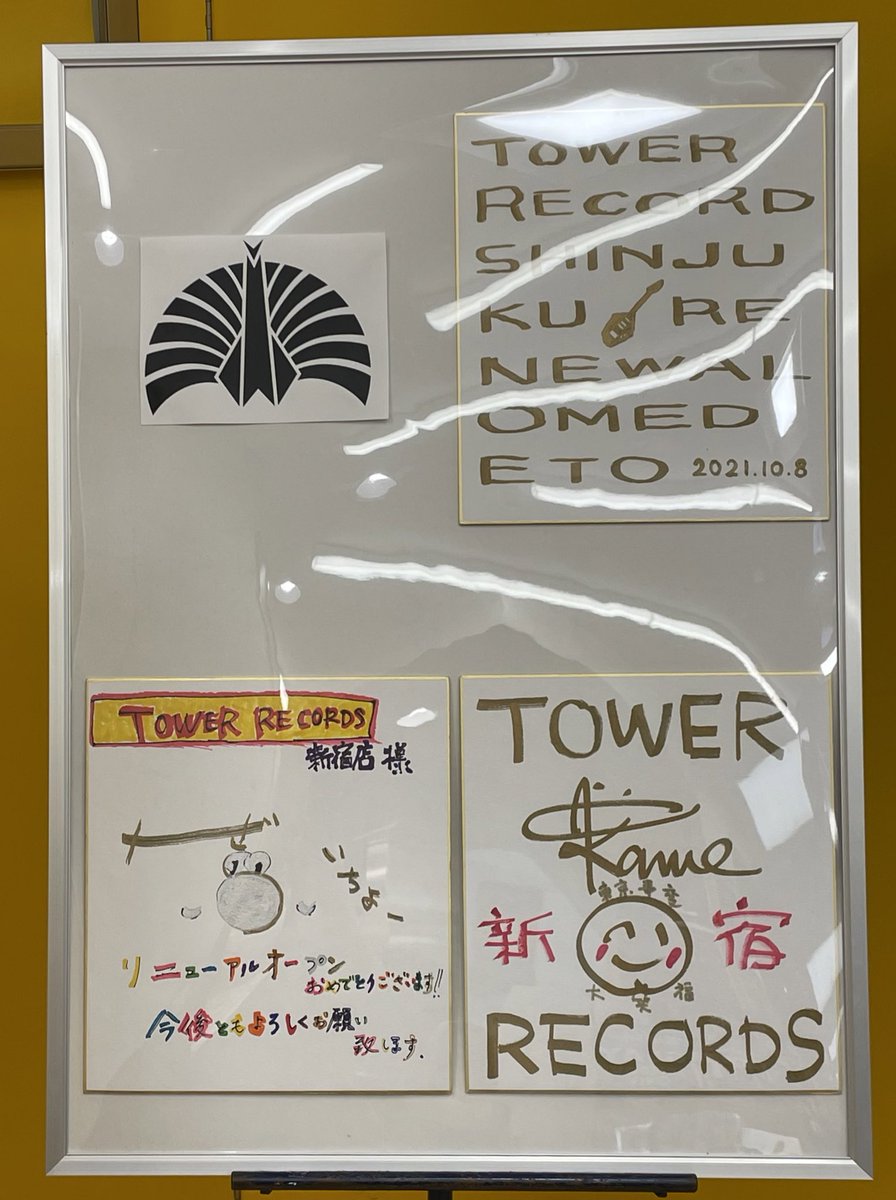 TOWER
RECORD
SHINJU
KU RE
NEWAL
OMED
ETO 2021.10.8
TOWER RECORDS
新宿店様
いちょー
リニューアルオープン
おめでとうございます!!
今後ともよろしくお願い
致します.
TOWER
Kame
新 宿
大笑福
RECORDS